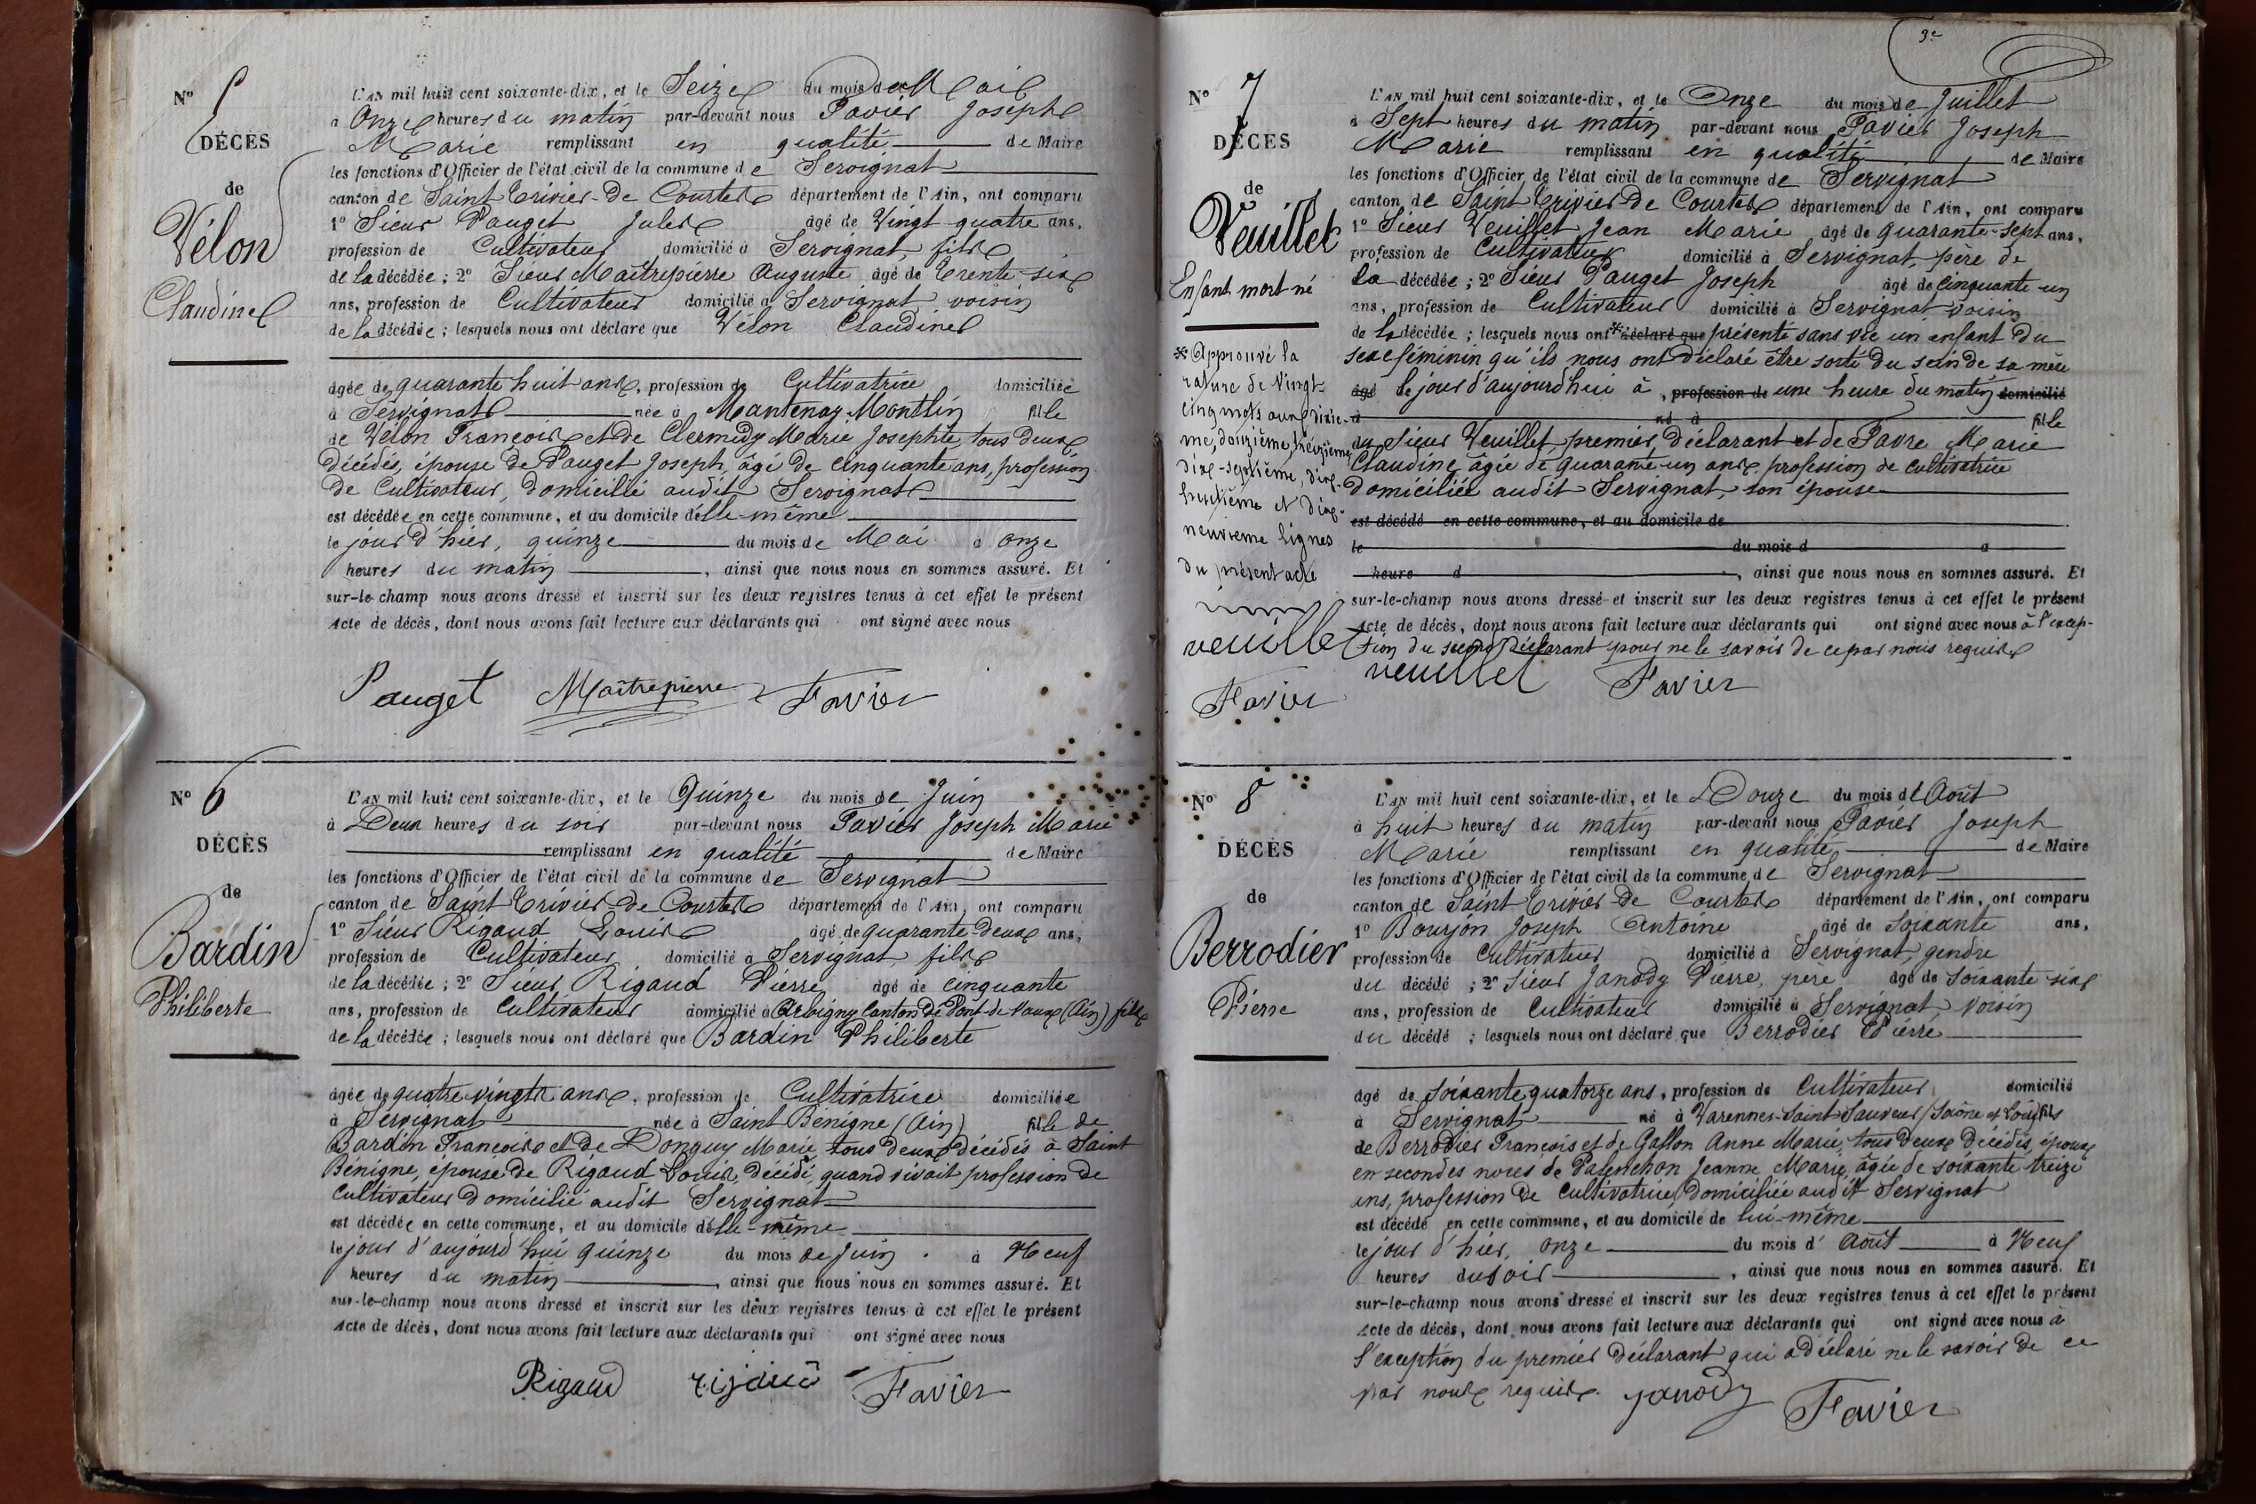 N° 5
DÉCÈS
de
Vélon
Claudine
L'AN mil huit cent soixante-dix, et le Seize du mois de Mai
à Onze heures du matin par-devant nous Favier Joseph
Marie remplissant en qualité de Maire
les fonctions d'Officier de l'état civil de la commune de Servignat
canton de Saint Trivier-De Courtes département de l'Ain, ont comparu
1° Sieur Pauget Jules âgé de Vingt quatre ans,
profession de Cultivateur domicilié à Servignat, fils
de la décédée ; 2° Sieur Maîtrepierre Auguste âgé de Trente-six
ans, profession de Cultivateur domicilié à Servignat voisin
de la décédée ; lesquels nous ont déclaré que Vélon Claudine
âgée de quarante huit ans, profession de Cultivatrice domiciliée
à Servignat née à Mantenay Montlin fille
de Vélon François et de Clermidy Marie Josephte, tous deux
décédés, épouse de Pauget Joseph, âgé de cinquante ans, profession
de Cultivateur, domicilié audit Servignat
est décédée en cette commune, et au domicile d'elle-même
le jour d'hier, quinze du mois de Mai à onze
heures du matin, ainsi que nous nous en sommes assuré. Et
sur-le-champ nous avons dressé et inscrit sur les deux registres tenus à cet effet le présent
Acte de décès, dont nous avons fait lecture aux déclarants qui ont signé avec nous
Pauget Maîtrepierre Favier
N° 6
DÉCÈS
de
Bardin
Philiberte
L'AN mil huit cent soixante-dix, et le Quinze du mois de Juin
à Deux heures du soir par-devant nous Favier Joseph Marie
remplissant en qualité de Maire
les fonctions d'Officier de l'état civil de la commune de Servignat
canton de Saint Trivier-de Courtes département de l'Ain, ont comparu
1° Sieur Rigaud Louis âgé de quarante deux ans,
profession de Cultivateur domicilié à Servignat, fils
de la décédée ; 2° Sieur Rigaud Pierre âgé de cinquante
ans, profession de Cultivateur domicilié à Arbigny Canton de Pont-de-Vaux (Ain) fils
de la décédée ; lesquels nous ont déclaré que Bardin Philiberte
âgée de quatre vingts ans, profession de Cultivatrice domiciliée
à Servignat née à Saint Bénigne (Ain) fille de
Bardin François et de Donguy Marie, tous deux décédés à Saint
Bénigne, épouse de Rigaud Louis, décédé, quand vivait profession de
Cultivateur domicilié audit Servignat
est décédée en cette commune, et au domicile d'elle-même
le jour d'aujourd'hui quinze du mois de Juin à Neuf
heures du matin, ainsi que nous nous en sommes assuré. Et
sur-le-champ nous avons dressé et inscrit sur les deux registres tenus à cet effet le présent
Acte de décès, dont nous avons fait lecture aux déclarants qui ont signé avec nous
Rigaud rigaud Favier
3e
N° 7
DÉCÈS
de
Veuillet
Enfant mort né
* Approuvé la
rature de Vingt
cinq mots aux dixiè-
me, douzième, treizième
dix-septième, dix-
huitième et dix-
neuvième lignes
du présent acte
veuillet
Favier
L'AN mil huit cent soixante-dix, et le Onze du mois de Juillet
à Sept heures du matin par-devant nous Favier Joseph
Marie remplissant en qualité de Maire
les fonctions d'Officier de l'état civil de la commune de Servignat
canton de Saint Trivier De Courtes département de l'Ain, ont comparu
1° Sieur Veuillet Jean Marie âgé de quarante-sept ans,
profession de Cultivateur domicilié à Servignat, père de
la décédée ; 2° Sieur Pauget Joseph âgé de cinquante-un
ans, profession de Cultivateur domicilié à Servignat voisin
de la décédée ; lesquels nous ont * déclaré que présenté sans vie un enfant du
sexe féminin qu'ils nous ont déclaré être sorti du sein de sa mère
âgé le jour d'aujourd'hui à, profession de une heure du matin domicilié
à né à fille
du Sieur Veuillet, premier déclarant et de Favre Marie
Claudine âgée de quarante-un ans, profession de cultivatrice
domiciliée audit Servignat, son épouse
est décédé en cette commune, et au domicile de
le du mois d à
heure d, ainsi que nous nous en sommes assuré. Et
sur-le-champ nous avons dressé et inscrit sur les deux registres tenus à cet effet le présent
Acte de décès, dont nous avons fait lecture aux déclarants qui ont signé avec nous à l'excep-
tion du second déclarant pour ne le savoir de ce par nous requis
veuillet Favier
N° 8
DÉCÈS
de
Berrodier
Pierre
L'AN mil huit cent soixante-dix, et le Douze du mois d'Août
à huit heures du matin par-devant nous Favier Joseph
Marie remplissant en qualité de Maire
les fonctions d'Officier de l'état civil de la commune de Servignat
canton de Saint Trivier-De Courtes département de l'Ain, ont comparu
1° Bouyon Joseph Antoine âgé de soixante ans,
profession de Cultivateur domicilié à Servignat, gendre
du décédé ; 2° Sieur Janody Pierre, père âgé de soixante-six
ans, profession de Cultivateur domicilié à Servignat voisin
du décédé ; lesquels nous ont déclaré que Berrodier Pierre
âgé de soixante quatorze ans, profession de Cultivateur domicilié
à Servignat né à Varennes-Saint-Sauveur (Saône et Loire) fils
de Berrodier François et de Gallon Anne Marie, tous deux décédés, époux
en secondes noces de Jeanne Marie, âgée de soixante treize
ans, profession de Cultivatrice, domiciliée audit Servignat
est décédé en cette commune, et au domicile de lui-même
le jour d'hier, onze du mois d'Août à Neuf
heures du soir, ainsi que nous nous en sommes assuré. Et
sur-le-champ nous avons dressé et inscrit sur les deux registres tenus à cet effet le présent
Acte de décès, dont nous avons fait lecture aux déclarants qui ont signé avec nous à
l'exception du premier déclarant qui a déclaré ne le savoir de ce
par nous requis. janody Favier